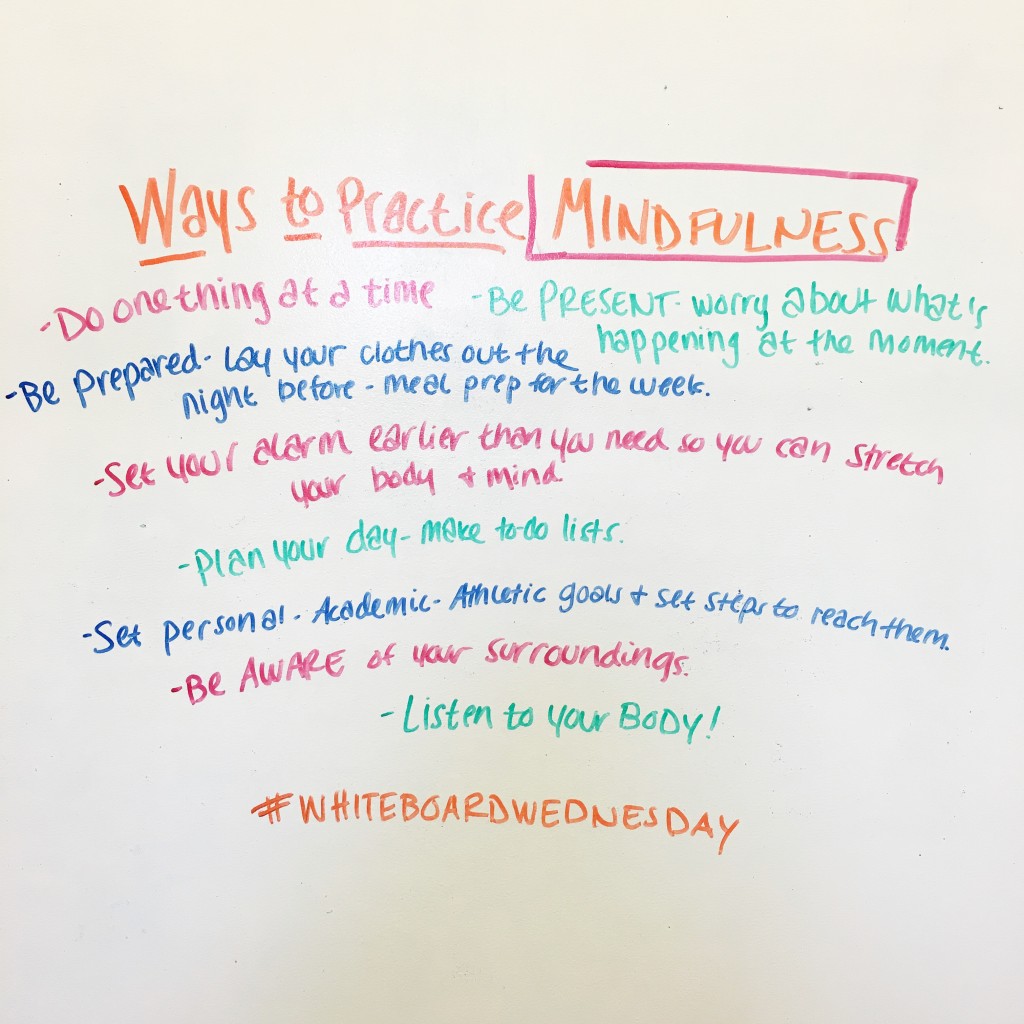 Ways to Practice MINDFULNESS
-Do one thing at a time
-Be PRESENT- worry about what's
happening at the moment.
-Be prepared- Lay your clothes out the
night before - meal prep for the week.
-Set your alarm earlier than you need so you can stretch
your body + mind.
-Plan your day- make to-do lists.
-Set personal - Academic - Athletic goals + set steps to reach them.
-Be AWARE of your surroundings.
-Listen to your BODY!
#WHITEBOARDWEDNESDAY